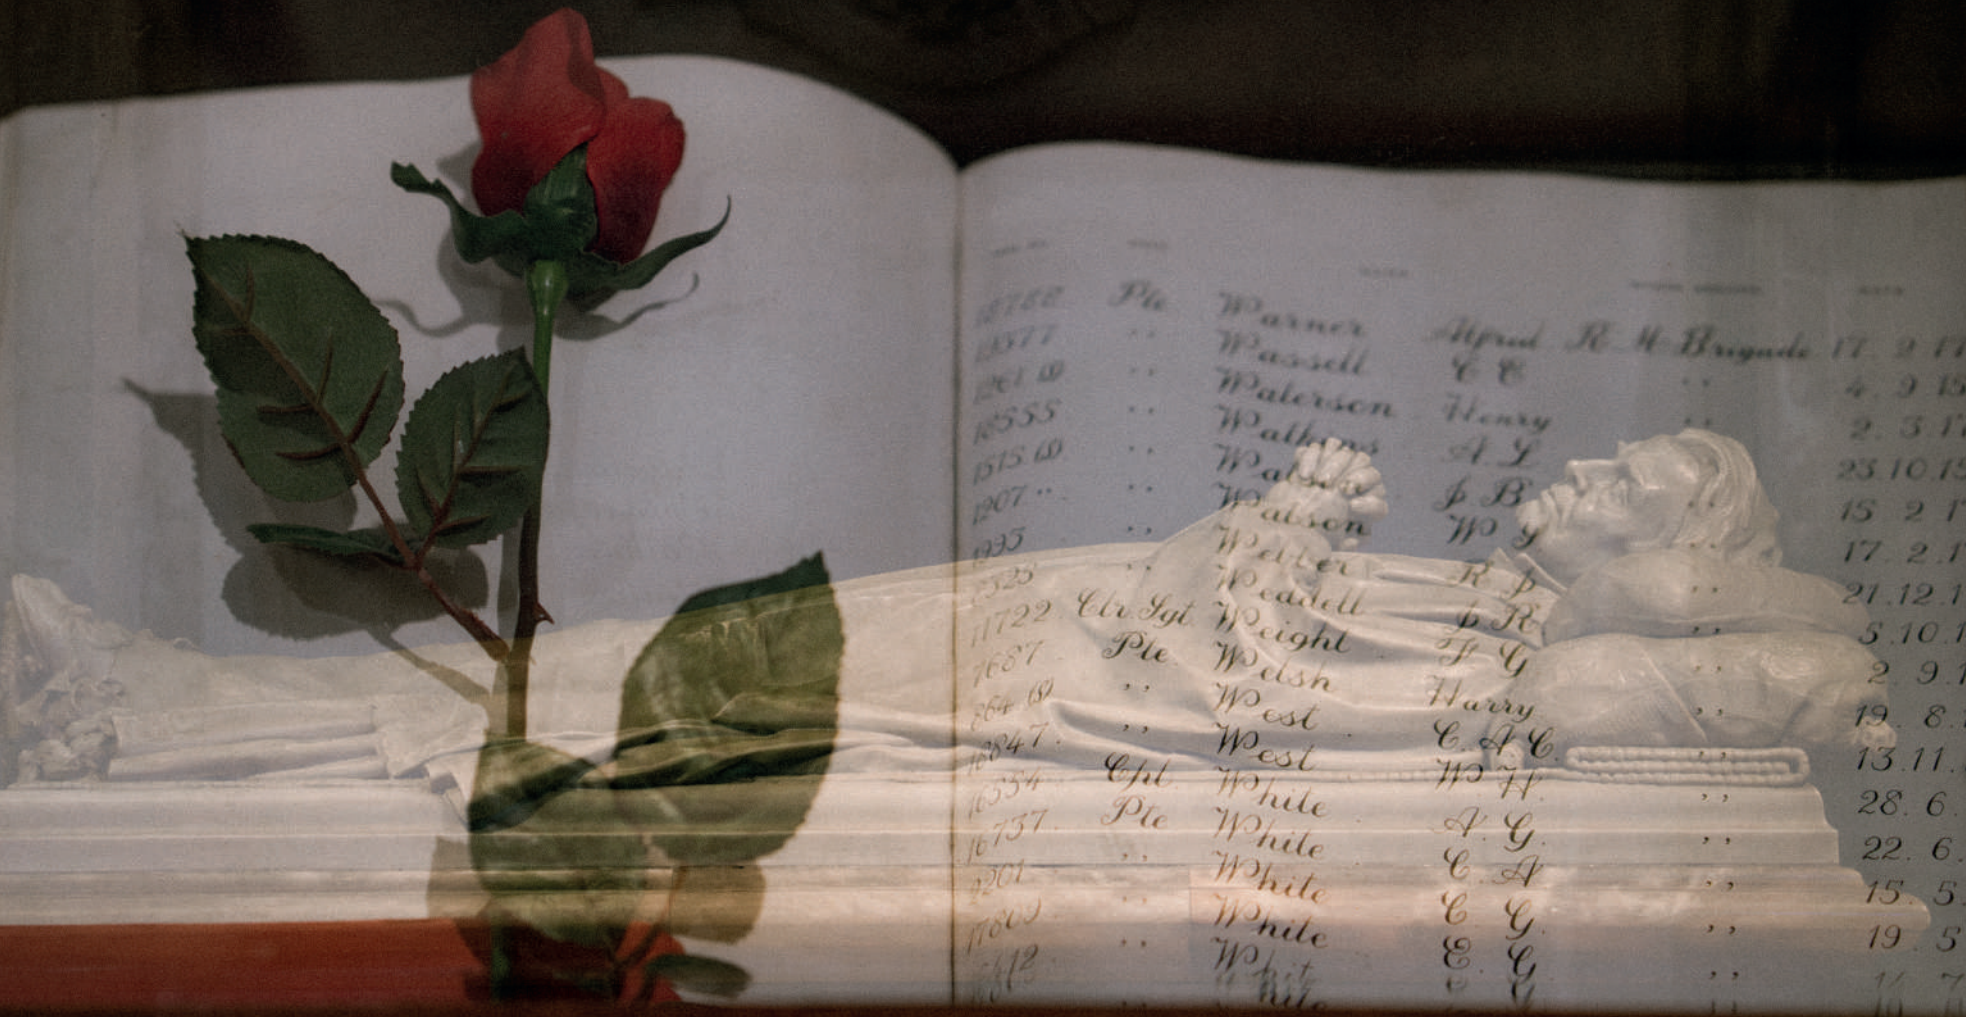 Pte Warner Alfred R M Brigade 17 2 17
19377 '' Wassell C C '' 4. 9 15
1261 (S) '' Waterson Henry '' 2. 3.
18555 '' Watkins A. L '' 23.10.15
1515 (S) '' Watson J B '' 15 2
1207 '' Watson W G '' 17. 2.
1995 '' Webber R J '' 21.12.
2325 '' Weadell J R '' 5.10.
11722 Clr Sgt. Weight F G '' 2. 9.
7687 Pte Welsh Harry '' 19. 8.
864 (S) '' West C. A C. '' 13.11.
18847 '' West W H '' 28. 6.
16554 Cpl White A. G. '' 22. 6.
16737 Pte White C. A '' 15. 5.
2201 '' White C. G. '' 19. 5
17809 '' White E G ''